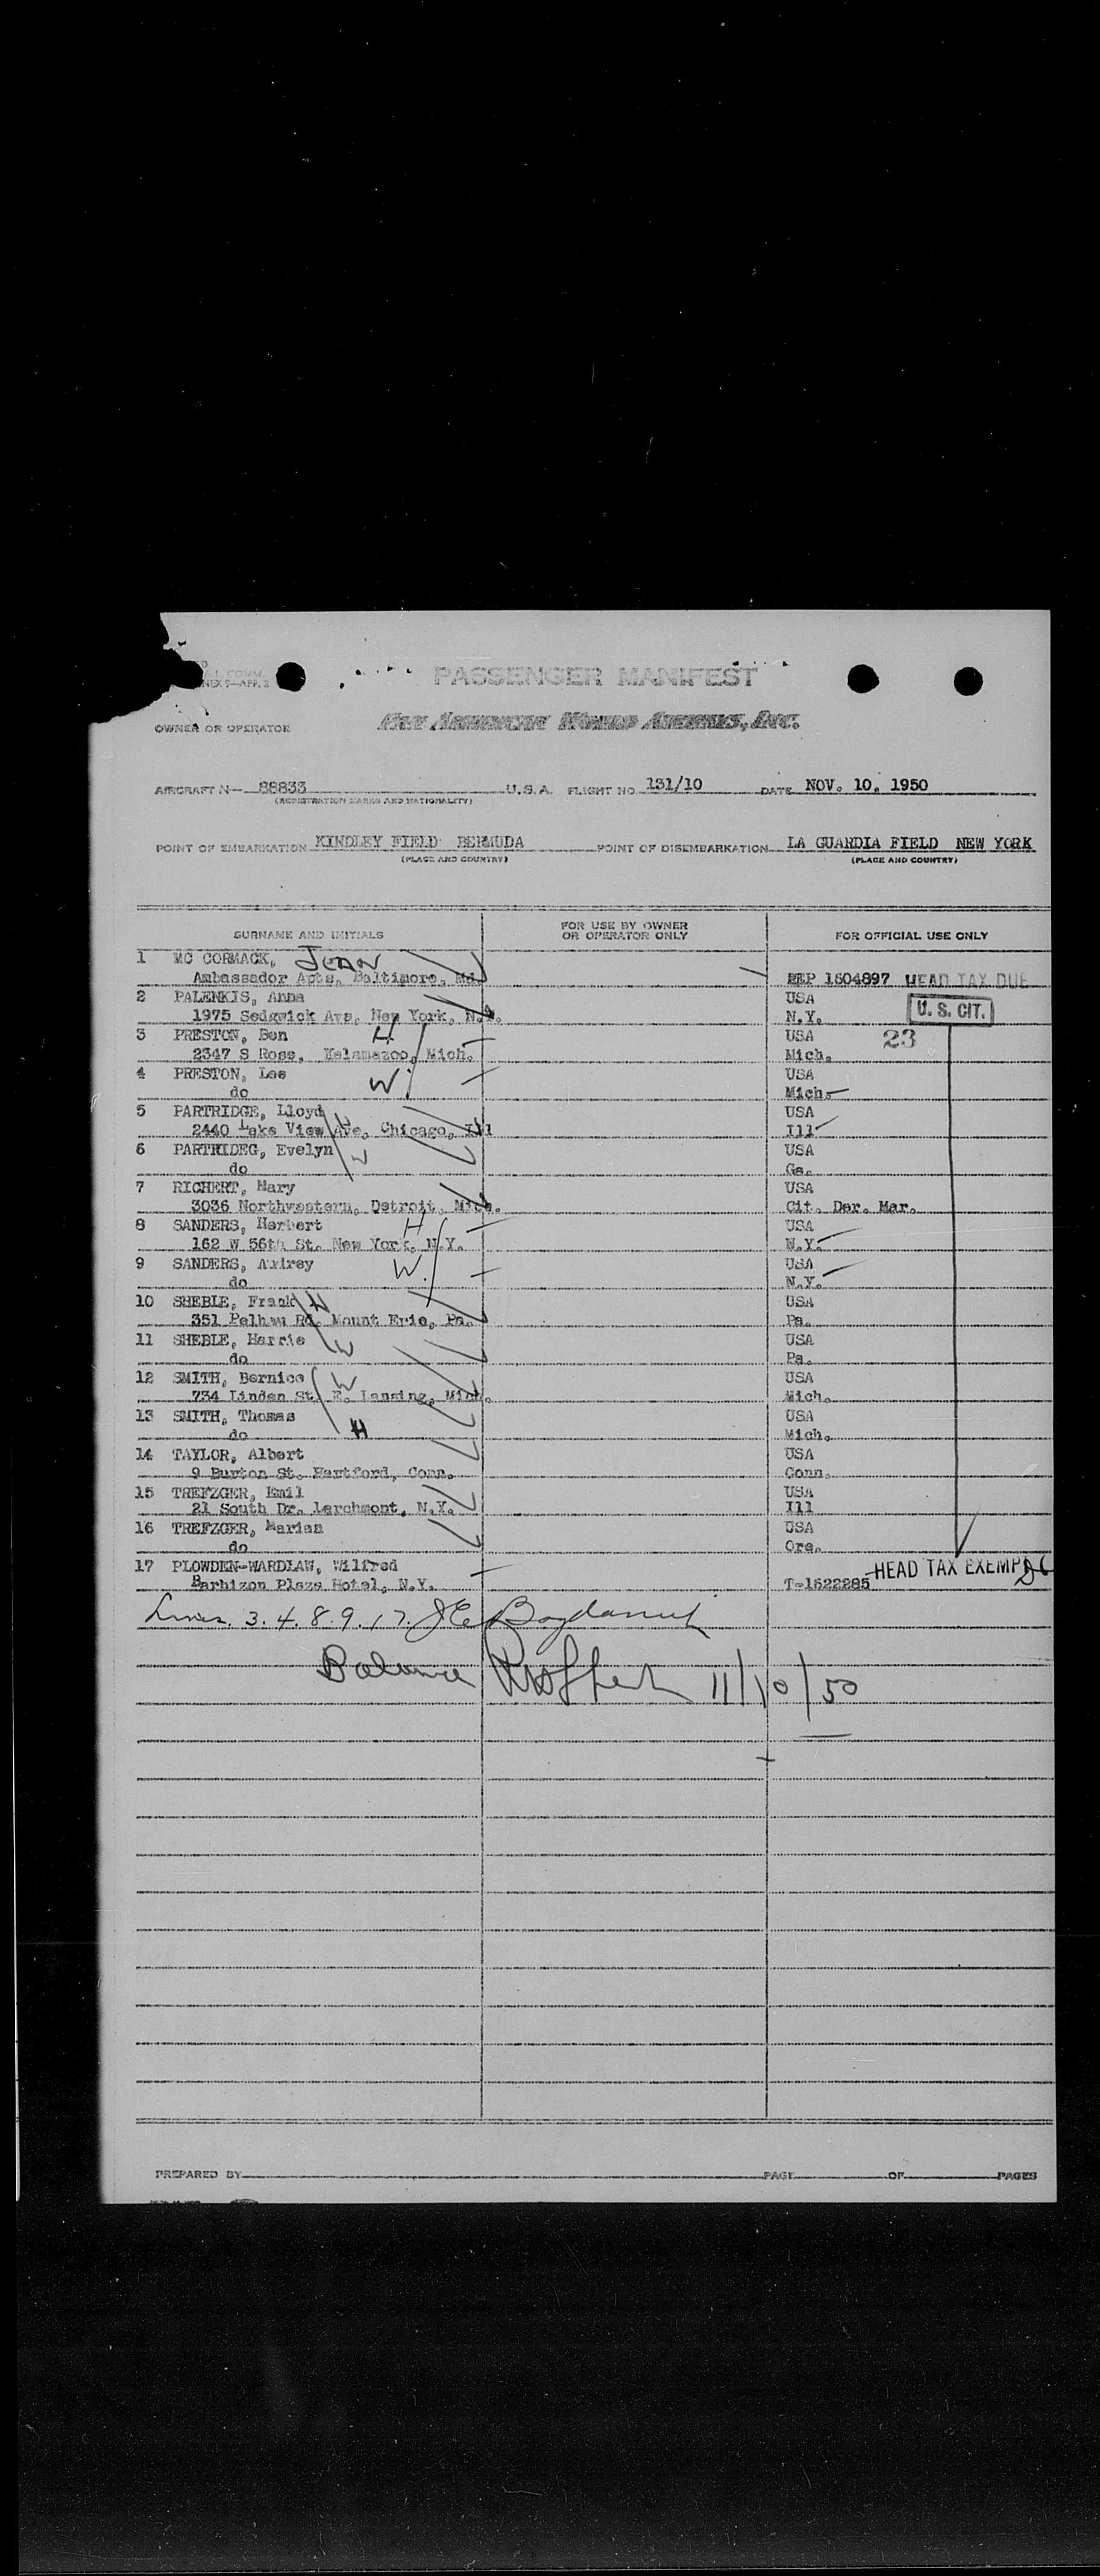 AL COMM.
NEX 9—APP. 2
PASSENGER MANIFEST
OWNER OR OPERATOR
Pan American World Airways, Inc.
AIRCRAFT N— 88833 U.S.A. FLIGHT NO. 131/10 DATE NOV. 10, 1950
(REGISTRATION MARKS AND NATIONALITY)
POINT OF EMBARKATION KINDLEY FIELD BERMUDA POINT OF DISEMBARKATION LA GUARDIA FIELD NEW YORK
(PLACE AND COUNTRY) (PLACE AND COUNTRY)
SURNAME AND INITIALS FOR USE BY OWNER OR OPERATOR ONLY FOR OFFICIAL USE ONLY
1 MC CORMACK, JEAN
Ambassador Apts, Baltimore, Md. REP 1604897 HEAD TAX DUE
2 PALENKIS, Anna USA U. S. CIT.
1975 Sedgwick Ave, New York, N.Y. N.Y.
3 PRESTON, Ben H USA 23
2347 S Rose, Kalamazoo, Mich. Mich.
4 PRESTON, Lee W USA
do Mich.
5 PARTRIDGE, Lloyd H USA
2440 Lake View Ave, Chicago, Ill Ill
6 PARTRIDEG, Evelyn W USA
do Ga.
7 RICHERT, Mary USA
3036 Northwestern, Detroit, Mich. Cit. Der. Mar.
8 SANDERS, Herbert H USA
162 W 56th St. New York, N.Y. N.Y.
9 SANDERS, Audrey W. USA
do N.Y.
10 SHEBLE, Frank H USA
351 Pelham Rd. Mount Eric, Pa. Pa.
11 SHEBLE, Harrie W USA
do Pa.
12 SMITH, Bernice W USA
734 Linden St. E. Lansing, Mich. Mich.
13 SMITH, Thomas USA
do H Mich.
14 TAYLOR, Albert USA
9 Burton St. Hartford, Conn. Conn.
15 TREFZGER, Emil USA
21 South Dr. Larchmont, N.Y. Ill
16 TREFZGER, Marian USA
do Ore.
17 PLOWDEN-WARDLAW, Wilfred HEAD TAX EXEMPT
Barbizon Plaza Hotel, N.Y. T-1622285
Lines. 3. 4. 8. 9. 17. JE
Balance 11/10/50
PREPARED BY PAGE OF PAGES